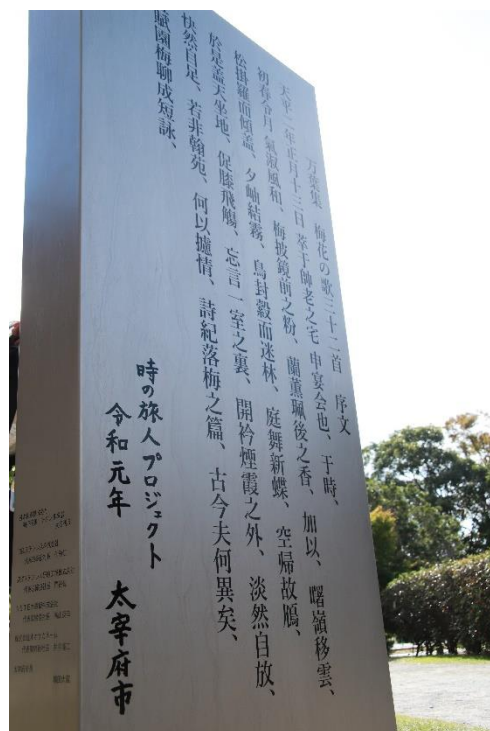 万葉集 梅花の歌三十二首 序文
天平二年正月十三日 萃于帥老之宅 申宴会也、于時、
初春令月 氣淑風和、梅披鏡前之粉、蘭薫珮後之香、加以、曙嶺移雲、
松掛羅而傾盖、夕岫結霧、鳥封縠而迷林、庭舞新蝶、空帰故鴈、
於是盖天坐地、促膝飛觴、忘言一室之裏、開衿煙霞之外、淡然自放、
快然自足、若非翰苑、何以攄情、詩紀落梅之篇、古今夫何異矣、
賦園梅聊成短詠、
時の旅人プロジェクト
令和元年 太宰府市